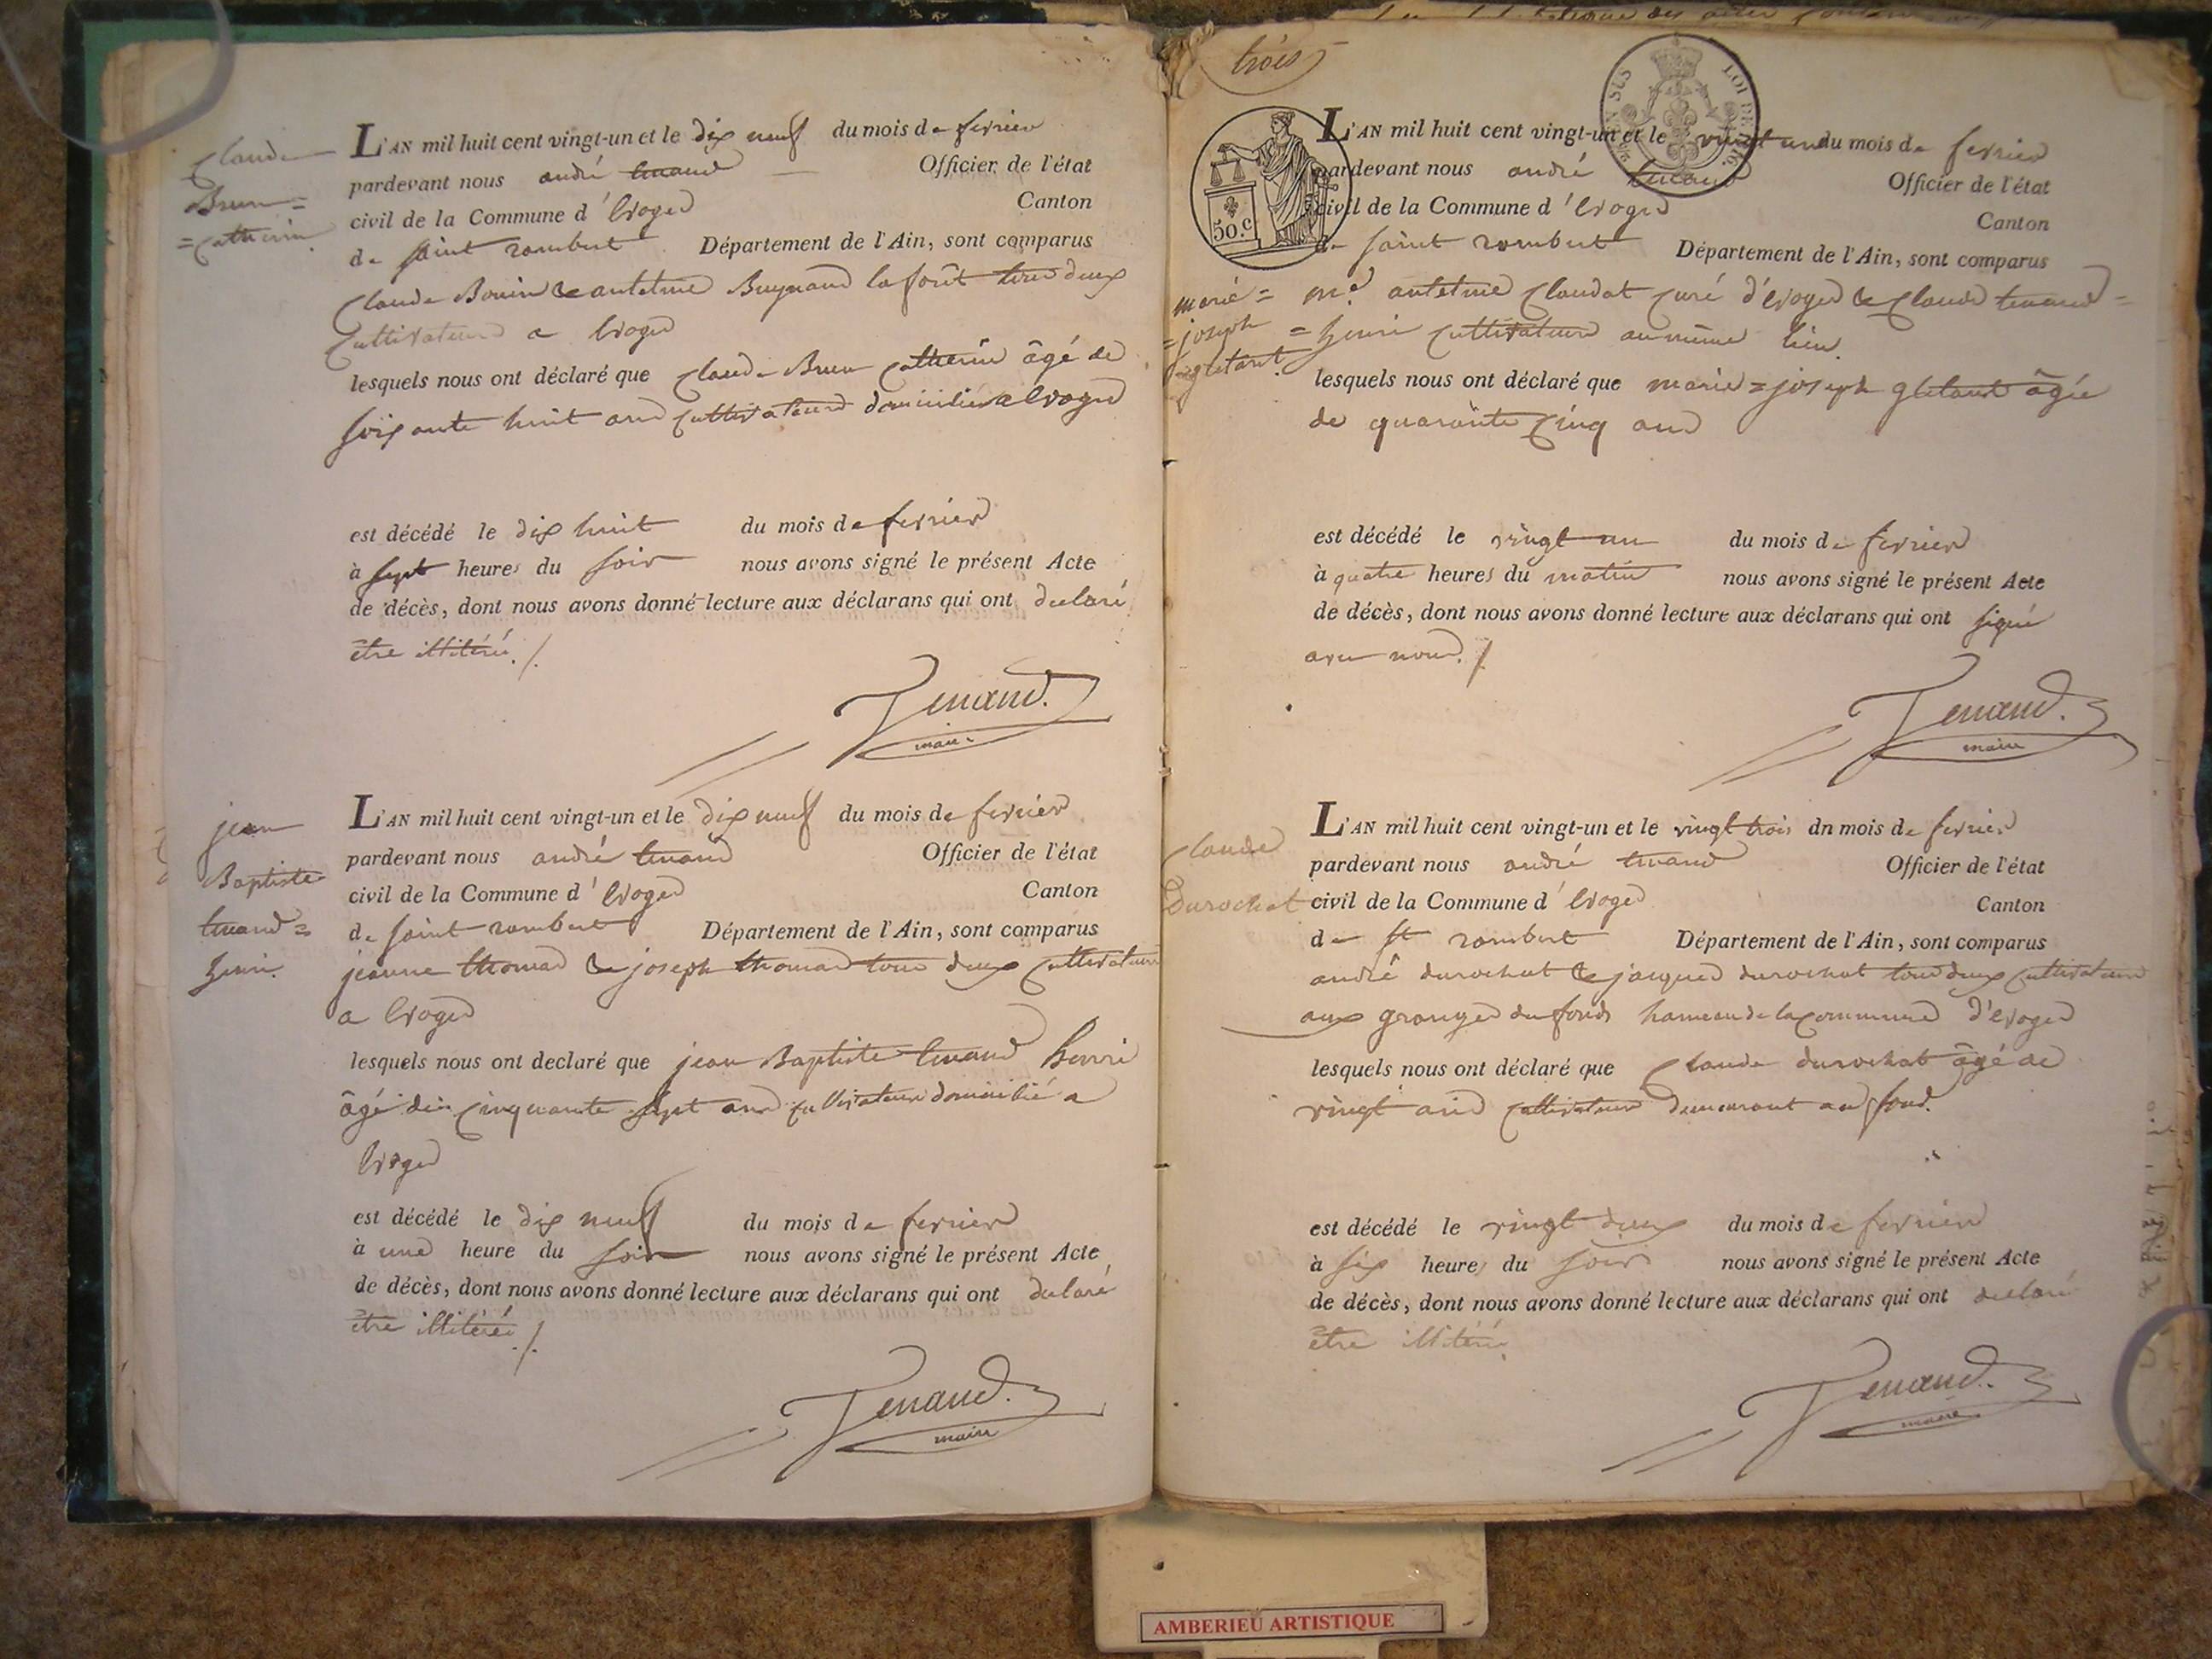 Claude
Brun =
= Catherin
L'AN mil huit cent vingt-un et le dix neuf du mois de fevrier
pardevant nous andré tenand Officier de l'état
civil de la Commune d'Evoges Canton
de saint rambert Département de l'Ain, sont comparus
Claude Bouin & antelme Buynand laforêt tous deux
Cultivateurs a Evoges
lesquels nous ont déclaré que Claude Brun Catherin âgé de
soixante huit ans Cultivateur domicilié a Evoges
est décédé le dix huit du mois de fevrier
à sept heures du soir nous avons signé le présent Acte
de décès, dont nous avons donné lecture aux déclarans qui ont declaré
être illitéré ./.
Tenand.
maire
jean
Baptiste
tenand =
henri.
L'AN mil huit cent vingt-un et le dix neuf du mois de fevrier
pardevant nous andré tenand Officier de l'état
civil de la Commune d'Evoges Canton
de saint rambert Département de l'Ain, sont comparus
jeanne thomas & joseph thomas tous deux Cultivateurs
a Evoges
lesquels nous ont declaré que jean Baptiste tenand henri
âgé de Cinquante sept ans Cultivateur domicilié a
Evoges
est décédé le dix neuf du mois de fevrier
à une heure du soir nous avons signé le présent Acte
de décès, dont nous avons donné lecture aux déclarans qui ont declaré
être illitéré ./.
Tenand.
maire
trois
EN SUS
LOI DE 1816
50.c
L'AN mil huit cent vingt-un et le vingt un du mois de fevrier
pardevant nous andré tenand Officier de l'état
civil de la Commune d'Evoges Canton
de saint rambert Département de l'Ain, sont comparus
marie =
= joseph
gletant.
mr. antelme Claudat curé d'évoges & Claude tenand =
= henri Cultivateur au même lieu.
lesquels nous ont déclaré que marie = joseph gletant âgée
de quarante Cinq ans
est décédé le vingt un du mois de fevrier
à quatre heures du matin nous avons signé le présent Acte
de décès, dont nous avons donné lecture aux déclarans qui ont signé
avec nous ./.
Tenand.
maire
Claude
Durochat
L'AN mil huit cent vingt-un et le vingt trois dn mois de fevrier
pardevant nous andré tenand Officier de l'état
civil de la Commune d'Evoges Canton
de st rambert Département de l'Ain, sont comparus
andré durochat & jacques durochat tous deux Cultivateurs
aux granges du fonds hameau de la commune d'évoges
lesquels nous ont déclaré que Claude durochat âgé de
vingt ans Cultivateur demeurant au fond.
est décédé le vingt deux du mois de fevrier
à six heures du soir nous avons signé le présent Acte
de décès, dont nous avons donné lecture aux déclarans qui ont declaré
être illitéré.
Tenand.
maire
AMBERIEU ARTISTIQUE